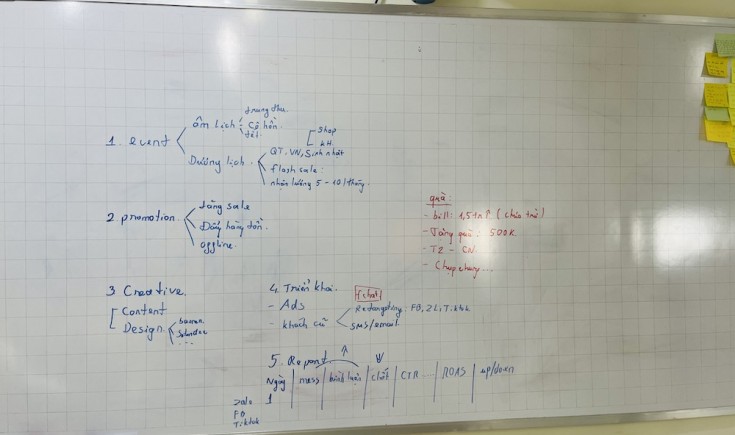 1. event
âm lịch:
trung thu.
Cô hồn.
tết.
Dương lịch.
QT, VN, Sinh nhật
Shop
KH
flash sale.
nhận lương 5 - 10/tháng.
2 promotion.
tăng sale
Đẩy hàng tồn.
offline.
quà:
- bill: 1,5tr ↑
- Tặng quà: 500K
- T2 - CN
3 Creative.
Content
Design.
...
4. Triển khai.
- Ads
- khách cũ
Retargeting: FB,
sms/email
5. Report.
Ngày | mess | bình luận | chốt | CTR | ROAS | up/down
1
Zalo
FB
Tiktok